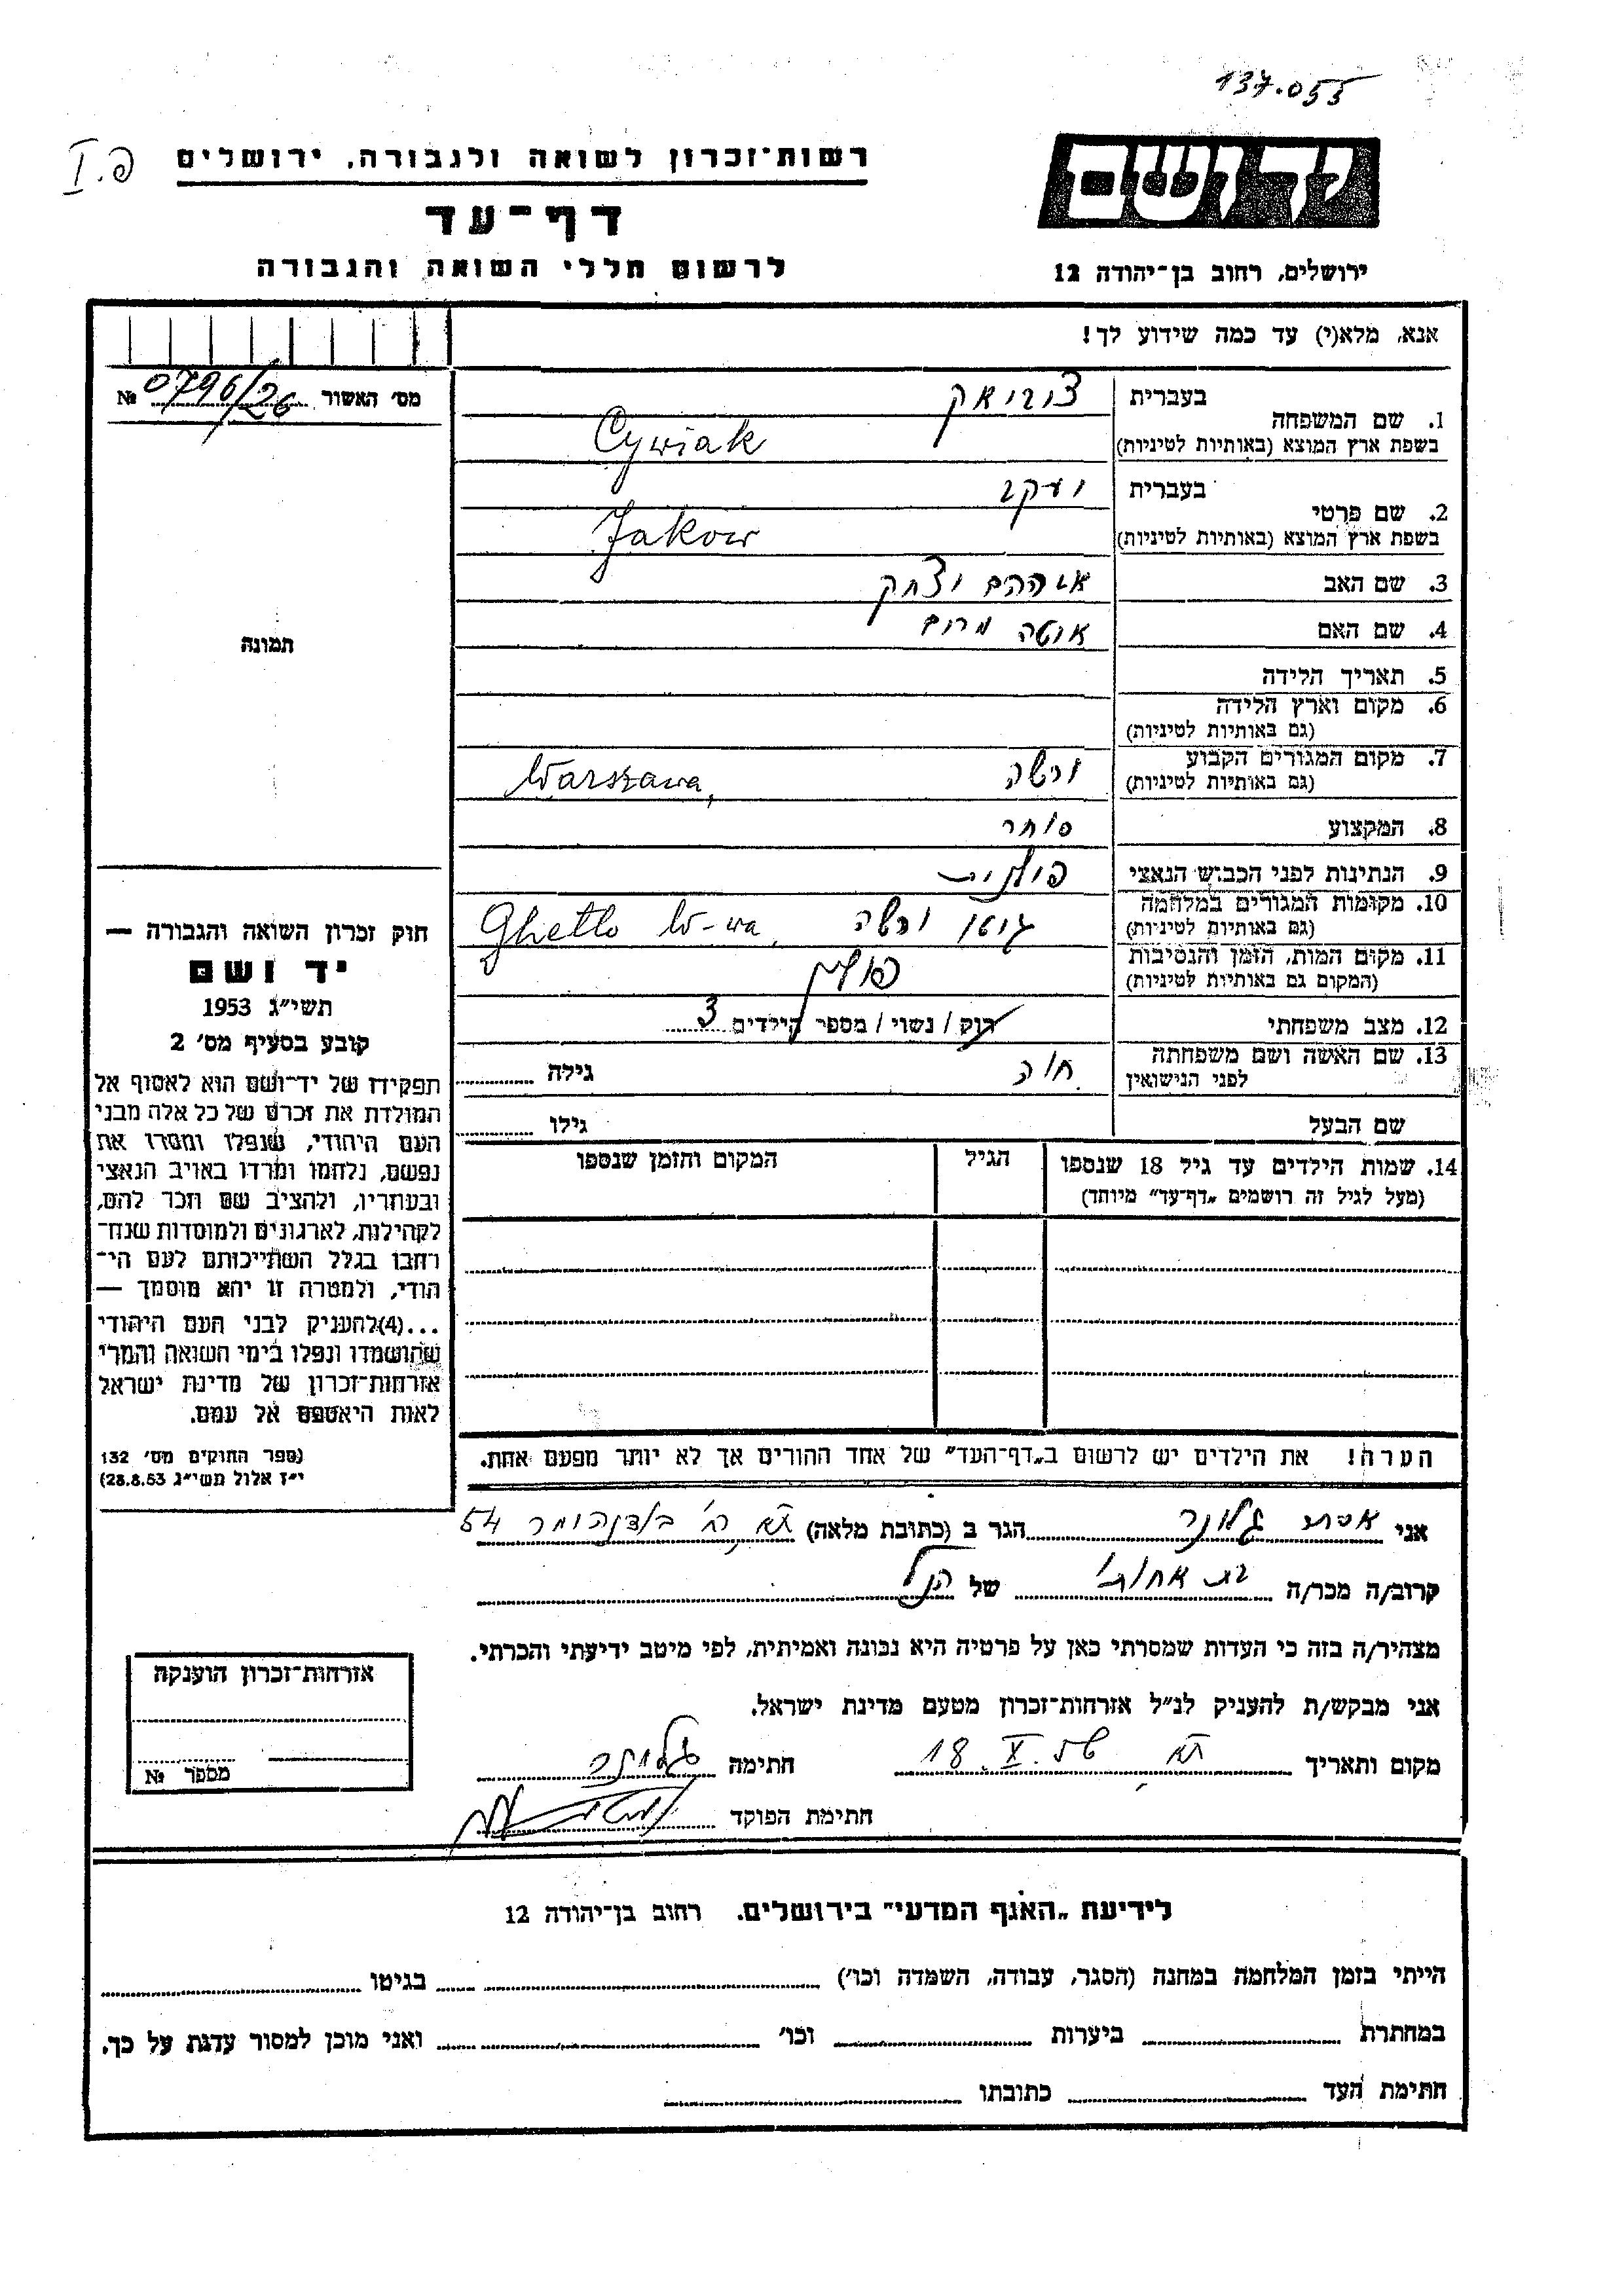 137.055
רשות־זכרון לשואה ולגבורה, ירושלים
פ. I
יד ושם
דף־עד
לרשום חללי השואה והגבורה
ירושלים, רחוב בן־יהודה 12
אנא, מלא(י) עד כמה שידוע לך!
מס׳ האשור № 0796/26
1. שם המשפחה
בעברית
צוויאק
בשפת ארץ המוצא (באותיות לטיניות)
Cywiak
2. שם פרטי
בעברית
יעקב
בשפת ארץ המוצא (באותיות לטיניות)
Jakow
3. שם האב אברהם יצחק
4. שם האם אוטה מרים
תמונה
5. תאריך הלידה
6. מקום וארץ הלידה
(גם באותיות לטיניות)
7. מקום המגורים הקבוע
(גם באותיות לטיניות)
ורשה Warszawa,
8. המקצוע סוחר
9. הנתינות לפני הכבוש הנאצי פולנית
10. מקומות המגורים במלחמה
(גם באותיות לטיניות)
גיטו ורשה Ghetto W-wa,
11. מקום המות, הזמן והנסיבות
(המקום גם באותיות לטיניות)
פולין
12. מצב משפחתי
רוק / נשוי / מספר הילדים 3
13. שם האשה ושם משפחתה
לפני הנישואין
חוה
גילה
שם הבעל
גילו
14. שמות הילדים עד גיל 18 שנספו
(מעל לגיל זה רושמים „דף־עד” מיוחד)
הגיל
המקום והזמן שנספו
חוק זכרון השואה והגבורה —
יד ושם
תשי״ג 1953
קובע בסעיף מס׳ 2
תפקידו של יד־ושם הוא לאסוף אל
המולדת את זכרם של כל אלה מבני
העם היהודי, שנפלו ומסרו את
נפשם, נלחמו ומרדו באויב הנאצי
ובעוזריו, ולהציב שם וזכר להם,
לקהילות, לארגונים ולמוסדות שנח־
רחבו בגלל השתייכותם לעם הי־
הודי, ולמטרה זו יהא מוסמך —
...(4)להעניק לבני העם היהודי
שהושמדו ונפלו בימי השואה והמרי
אזרחות־זכרון של מדינת ישראל
לאות היאספם אל עמם.
(ספר החוקים מס׳ 132
י״ז אלול תשי״ג 28.8.53)
הערה! את הילדים יש לרשום ב„דף־העד” של אחד ההורים אך לא יותר מפעם אחת.
אני אסתר גלונר הגר ב (כתובת מלאה) 54
קרוב/ה מכר/ה בת אחותי של הנ״ל
מצהיר/ה בזה כי העדות שמסרתי כאן על פרטיה היא נכונה ואמיתית, לפי מיטב ידיעתי והכרתי.
אני מבקש/ת להעניק לנ״ל אזרחות־זכרון מטעם מדינת ישראל.
מקום ותאריך 18. X. 56 חתימה
חתימת הפוקד
אזרחות־זכרון הוענקה
מספר №
לידיעת „האגף המדעי” בירושלים. רחוב בן־יהודה 12
הייתי בזמן המלחמה במחנה (הסגר, עבודה, השמדה וכו׳) בגיטו
במחתרת ביערות וכו׳ ואני מוכן למסור עדות על כך.
חתימת העד כתובתו